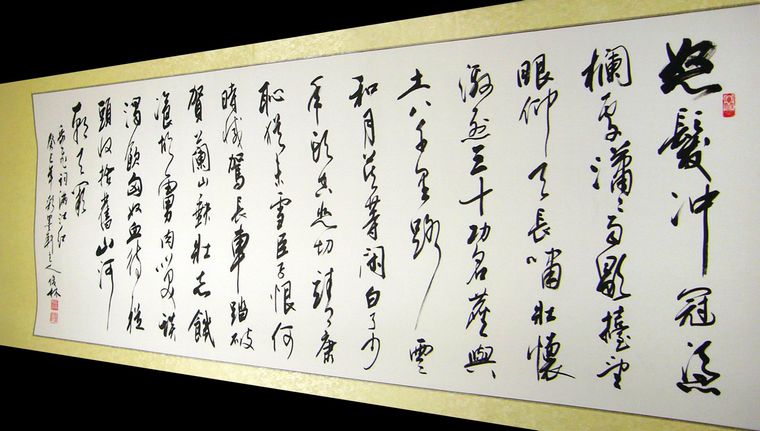 怒髮冲冠憑
欄處瀟瀟雨歇擡望
眼仰天長嘯壯懷
激烈三十功名塵與
土八千里路雲
和月莫等閑白了少
年頭空悲切靖康
恥猶未雪臣子恨何
時滅駕長車踏破
賀蘭山缺壯志餓
餐胡虜肉笑談
渴飲匈奴血待從
頭收拾舊山河
朝天闕
岳飛詞滿江紅
癸巳年 墨軒主人